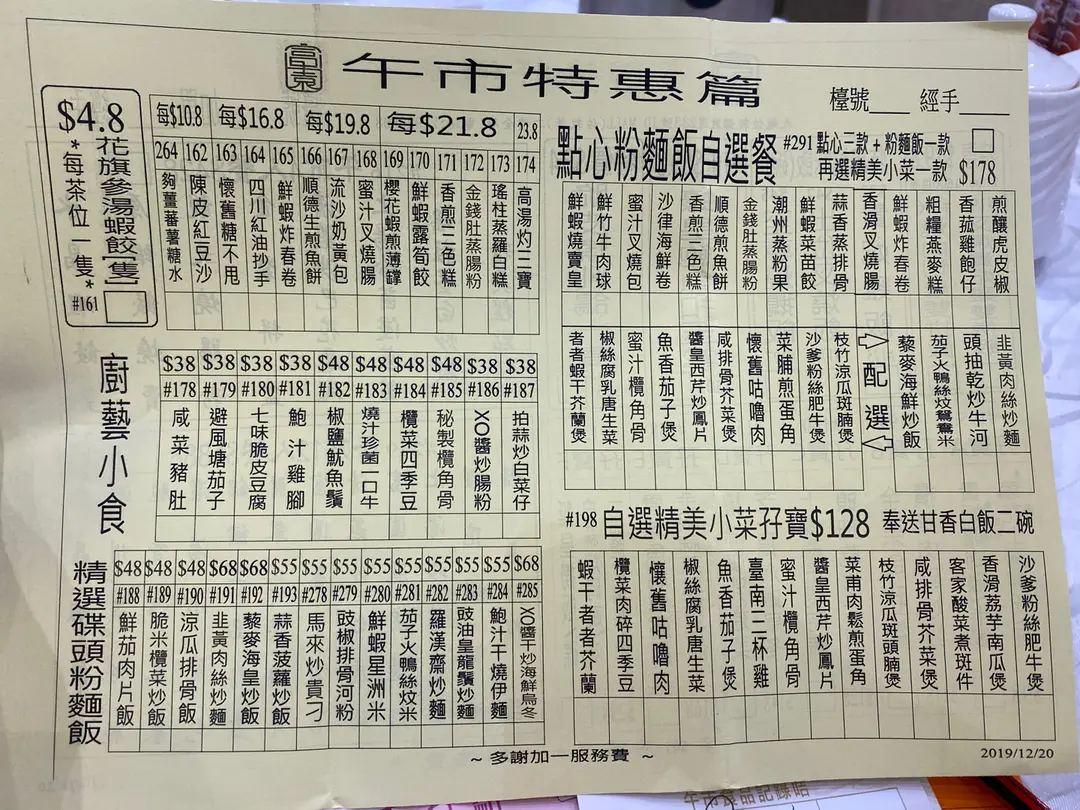 富東 午市特惠篇
檯號____ 經手____
$4.8
花旗參湯蝦餃[隻]
*每茶位一隻*
#161
每$10.8 每$16.8 每$19.8 每$21.8 23.8
264 162 163 164 165 166 167 168 169 170 171 172 173 174
夠薑蕃薯糖水
陳皮紅豆沙
懷舊糖不甩
四川紅油抄手
鮮蝦炸春卷
順德生煎魚餅
流沙奶黃包
蜜汁叉燒腸
櫻花蝦煎薄罉
鮮蝦露筍餃
香煎三色糕
金錢肚蒸腸粉
瑤柱蒸蘿白糕
高湯灼三寶
點心粉麵飯自選餐
#291 點心三款 + 粉麵飯一款
再選精美小菜一款 $178
鮮蝦燒賣皇
鮮竹牛肉球
蜜汁叉燒包
沙律海鮮卷
香煎三色糕
順德煎魚餅
金錢肚蒸腸粉
潮州蒸粉果
鮮蝦菜苗餃
蒜香蒸排骨
香滑叉燒腸
鮮蝦炸春卷
粗糧燕麥糕
香菇雞飽仔
煎釀虎皮椒
者者蝦干芥蘭煲
椒絲腐乳唐生菜
蜜汁欖角骨
魚香茄子煲
醬皇西芹炒鳳片
咸排骨芥菜煲
懷舊咕嚕肉
菜脯煎蛋角
沙爹粉絲肥牛煲
枝竹涼瓜斑腩煲
配選
藜麥海鮮炒飯
茄子火鴨絲炆鴛鴦米
頭抽乾炒牛河
韭黃肉絲炒麵
廚藝小食
$38 $38 $38 $38 $48 $48 $48 $48 $38 $38
#178 #179 #180 #181 #182 #183 #184 #185 #186 #187
咸菜豬肚
避風塘茄子
七味脆皮豆腐
鮑汁雞腳
椒鹽魷魚鬚
燒汁珍菌一口牛
欖菜四季豆
秘製欖角骨
XO醬炒腸粉
拍蒜炒白菜仔
#198 自選精美小菜孖寶$128 奉送甘香白飯二碗
蝦干者者芥蘭
欖菜肉碎四季豆
懷舊咕嚕肉
椒絲腐乳唐生菜
魚香茄子煲
臺南三杯雞
蜜汁欖角骨
醬皇西芹炒鳳片
菜甫肉鬆煎蛋角
枝竹涼瓜斑頭腩煲
咸排骨芥菜煲
客家酸菜煮斑件
香滑荔芋南瓜煲
沙爹粉絲肥牛煲
精選碟頭粉麵飯
$48 $48 $48 $68 $68 $55 $55 $55 $55 $55 $55 $55 $55 $68
#188 #189 #190 #191 #192 #193 #278 #279 #280 #281 #282 #283 #284 #285
鮮茄肉片飯
脆米欖菜炒飯
涼瓜排骨飯
韭黃肉絲炒麵
藜麥海皇炒飯
蒜香菠蘿炒飯
馬來炒貴刁
豉椒排骨河粉
鮮蝦星洲米
茄子火鴨絲炆米
羅漢齋炒麵
豉油皇龍鬚炒麵
鮑汁干燒伊麵
XO醬干炒海鮮烏冬
~ 多謝加一服務費 ~
2019/12/20